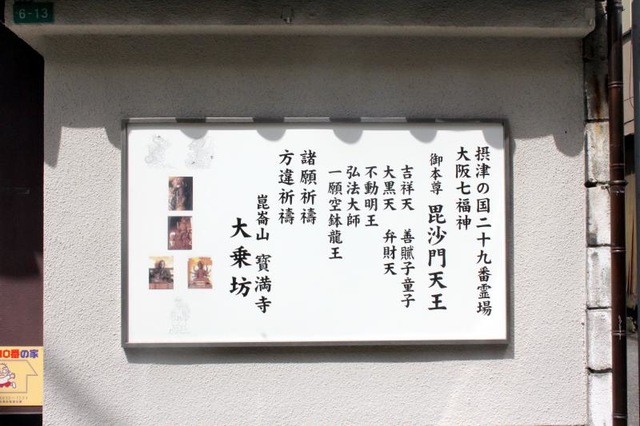 6-13
摂津の国二十九番霊場
大阪七福神
御本尊 毘沙門天王
吉祥天 善賦子童子
大黒天 弁財天
不動明王
弘法大師
一願空鉢龍王
諸願祈禱
方違祈禱
崑崙山 寳満寺
大乗坊
10番の家